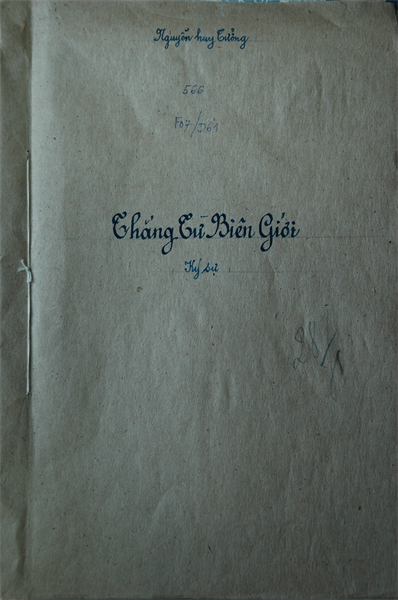 Nguyễn huy Tưởng
566
F07/3161
Thắng Từ Biên Giới
Ký sự